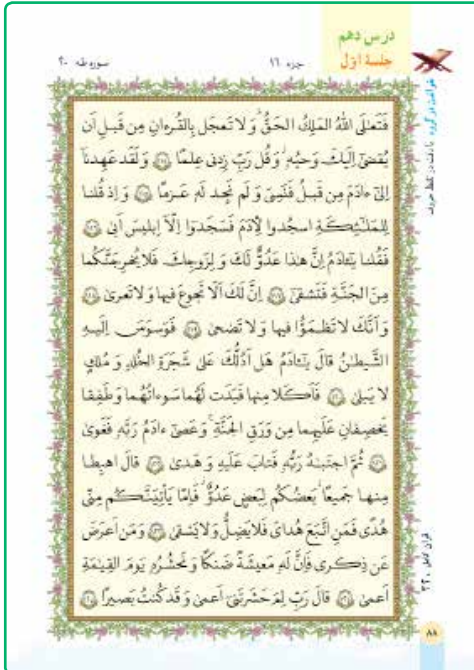 درس دهم
جلسهٔ اوّل
جزء ١٦
سوره طه ٢٠
فَتَعٰلَى اللّٰهُ المَلِكُ الحَقُّ ۗ وَ لا تَعجَل بِالقُرءانِ مِن قَبلِ اَن
يُقضىٰ اِلَيكَ وَحيُهٗ ۖ وَ قُل رَبِّ زِدنى عِلمًا ١١٤ وَ لَقَد عَهِدنا
اِلىٰ ءادَمَ مِن قَبلُ فَنَسِىَ وَ لَم نَجِد لَهٗ عَزمًا ١١٥ وَ اِذ قُلنا
لِلمَلٰئِكَةِ اسجُدوا لِأدَمَ فَسَجَدوا اِلّا اِبليسَ اَبىٰ ١١٦
فَقُلنا يٰئادَمُ اِنَّ هٰذا عَدُوٌّ لَكَ وَ لِزَوجِكَ فَلا يُخرِجَنَّكُما
مِنَ الجَنَّةِ فَتَشقىٰ ١١٧ اِنَّ لَكَ اَلّا تَجوعَ فيها وَ لا تَعرىٰ ١١٨
وَ اَنَّكَ لا تَظمَؤُا فيها وَ لا تَضحىٰ ١١٩ فَوَسوَسَ اِلَيهِ
الشَّيطٰنُ قالَ يٰئادَمُ هَل اَدُلُّكَ عَلىٰ شَجَرَةِ الخُلدِ وَ مُلكٍ
لا يَبلىٰ ١٢٠ فَاَكَلا مِنها فَبَدَت لَهُما سَوءاتُهُما وَ طَفِقا
يَخصِفانِ عَلَيهِما مِن وَرَقِ الجَنَّةِ ۚ وَ عَصىٰ ءادَمُ رَبَّهٗ فَغَوىٰ
١٢١ ثُمَّ اجتَبٰهُ رَبُّهٗ فَتابَ عَلَيهِ وَ هَدىٰ ١٢٢ قالَ اهبِطا
مِنها جَميعًا ۖ بَعضُكُم لِبَعضٍ عَدُوٌّ ۖ فَاِمّا يَأتِيَنَّكُم مِنّى
هُدًى فَمَنِ اتَّبَعَ هُداىَ فَلا يَضِلُّ وَ لا يَشقىٰ ١٢٣ وَ مَن اَعرَضَ
عَن ذِكرى فَاِنَّ لَهٗ مَعيشَةً ضَنكًا وَ نَحشُرُهٗ يَومَ القِيٰمَةِ
اَعمىٰ ١٢٤ قالَ رَبِّ لِمَ حَشَرتَنى اَعمىٰ وَ قَد كُنتُ بَصيرًا ١٢٥
٨٨